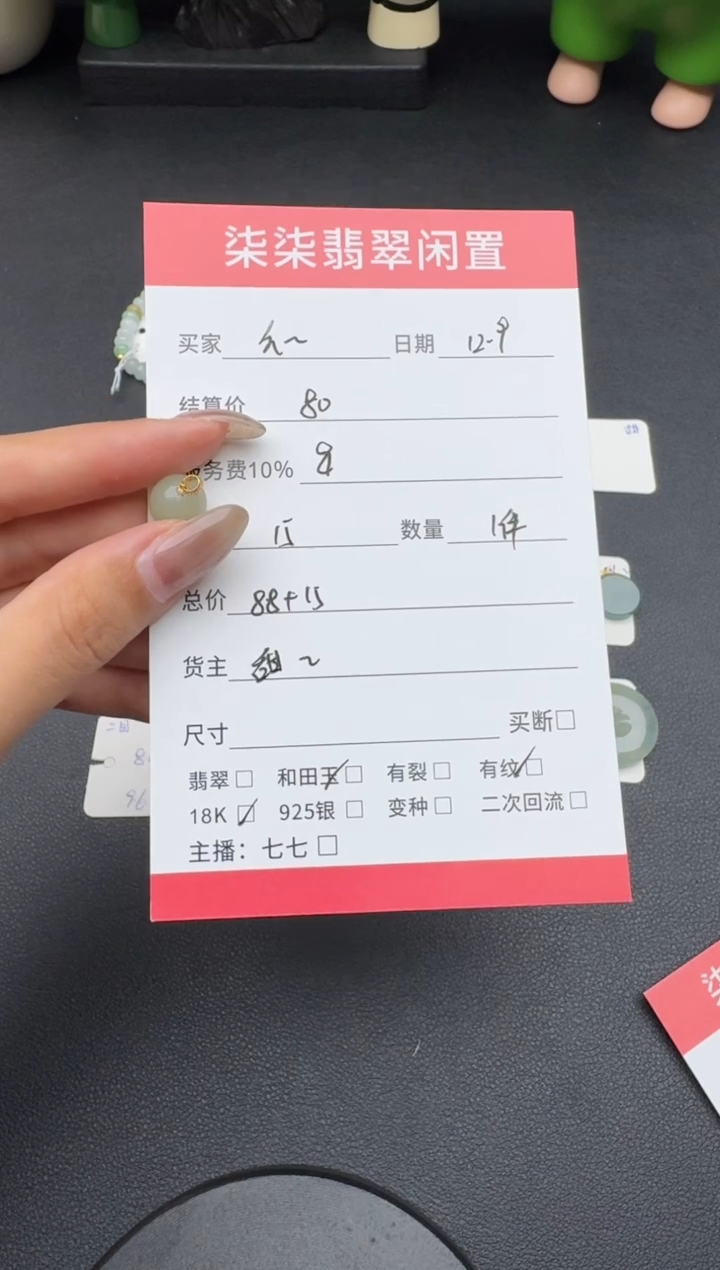 柒柒翡翠闲置
买家 元~ 日期 12-9
结算价 80
务费10% 8
15 数量 1件
总价 88+15
货主 甜~
尺寸 买断
翡翠 和田玉 有裂 有纹
18K 925银 变种 二次回流
主播：七七
柒